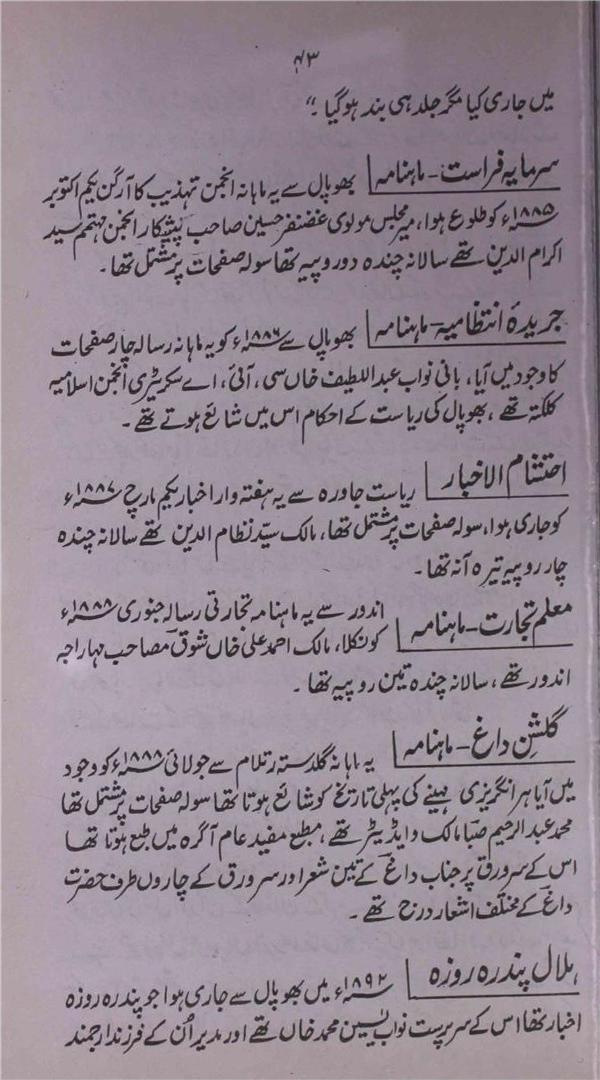 ۷۳
میں جاری کیا مگر جلد ہی بند ہو گیا۔“
سرمایہ فراست - ماہنامہ | بھوپال سے یہ ماہانہ انجمن تہذیب کا آرگن یکم اکتوبر
۱۸۸۵ء کو طلوع ہوا، میر مجلس مولوی غضنفر حسین صاحب پیشکار انجمن مہتمم سید
اکرام الدین تھے سالانہ چندہ دو روپیہ تھا سولہ صفحات پر مشتمل تھا۔
جریدۂ انتظامیہ - ماہنامہ | بھوپال سے ۱۸۸۶ء کو یہ ماہانہ رسالہ چار صفحات
کا وجود میں آیا، بانی نواب عبد اللطیف خاں سی، آئی، اے سکریٹری انجمن اسلامیہ
کلکتہ تھے، بھوپال کی ریاست کے احکام اس میں شائع ہوتے تھے۔
احتشام الاخبار | ریاست جاورہ سے یہ ہفتہ وار اخبار یکم مارچ ۱۸۸۷ء
کو جاری ہوا، سولہ صفحات پر مشتمل تھا، مالک سیّد نظام الدین تھے سالانہ چندہ
چار روپیہ تیرہ آنہ تھا۔
معلم تجارت - ماہنامہ | اندور سے یہ ماہنامہ تجارتی رسالہ جنوری ۱۸۸۸ء
کو نکلا، مالک احمد علی خاں شوقؔ مصاحب مہاراجہ
اندور تھے، سالانہ چندہ تین روپیہ تھا۔
گلشنِ داغ - ماہنامہ | یہ ماہانہ گلدستہ رتلام سے جولائی ۱۸۸۸ء کو وجود
میں آیا ہر انگریزی مہینے کی پہلی تاریخ کو شائع ہوتا تھا سولہ صفحات پر مشتمل تھا
محمد عبد الرحیم صباؔ مالک و ایڈیٹر تھے، مطبع مفید عام آگرہ میں طبع ہوتا تھا
اس کے سرورق پر جناب داغؔ کے تین شعر اور سرورق کے چاروں طرف حضرت
داغؔ کے مختلف اشعار درج تھے۔
ہلال پندرہ روزہ | ۱۸۹۲ء میں بھوپال سے جاری ہوا جو پندرہ روزہ
اخبار تھا اس کے سرپرست نواب یٰسین محمد خاں تھے اور مدیر اُن کے فرزند ارجمند